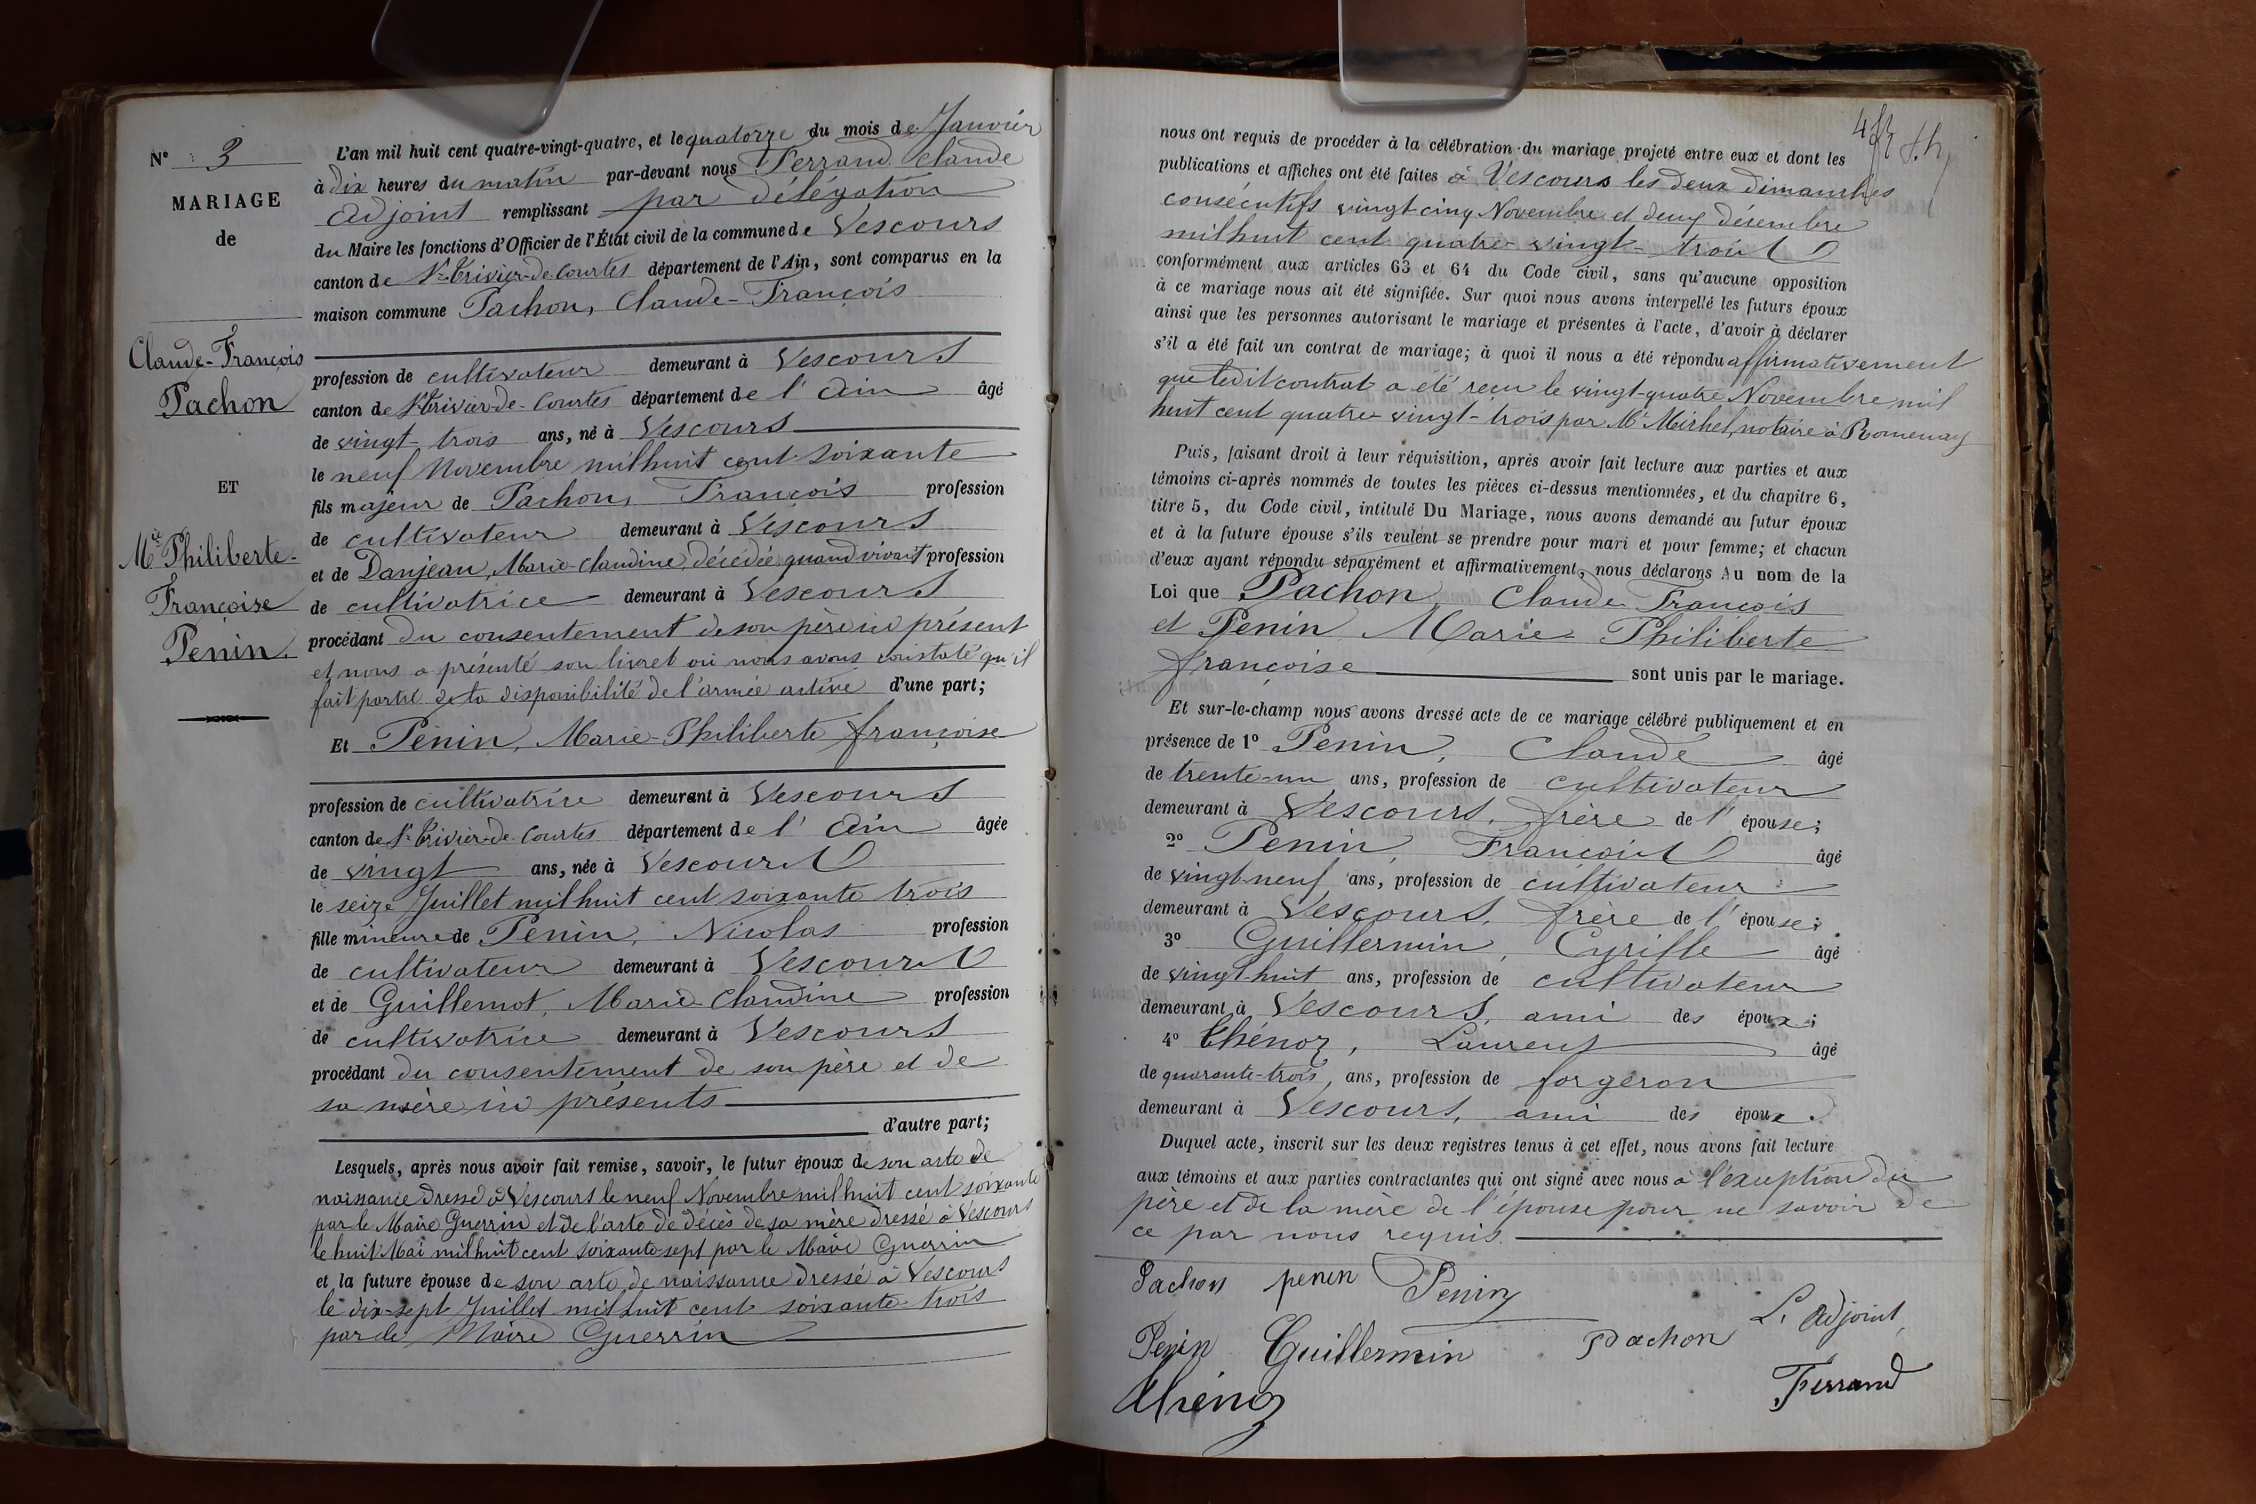 N° 3
MARIAGE
de
Claude-François
Pachon
ET
Mie Philiberte-
Françoise
Penin.
L'an mil huit cent quatre-vingt-quatre, et le quatorze du mois de Janvier
à dix heures du matin par-devant nous Ferrand Claude
Adjoint remplissant par délégation
du Maire les fonctions d'Officier de l'État civil de la commune de Vescours
canton de St-Trivier-de-Courtes département de l'Ain, sont comparus en la
maison commune Pachon, Claude-François
profession de cultivateur demeurant à Vescours
canton de St-Trivier-de-Courtes département de l'Ain âgé
de vingt-trois ans, né à Vescours
le neuf Novembre mil huit cent soixante
fils majeur de Pachon, François profession
de cultivateur demeurant à Vescours
et de Danjean, Marie-Claudine, décédée, quand vivait profession
de cultivatrice demeurant à Vescours
procédant du consentement de son père ici présent
et nous a présenté son livret où nous avons constaté qu'il
fait partie de la disponibilité de l'armée active d'une part;
Et Penin, Marie-Philiberte françoise
profession de cultivatrice demeurant à Vescours
canton de St-Trivier-de-Courtes département de l'Ain âgée
de vingt ans, née à Vescours
le seize Juillet mil huit cent soixante trois
fille mineure de Penin, Nicolas profession
de cultivateur demeurant à Vescours
et de Guillemot, Marie-Claudine profession
de cultivatrice demeurant à Vescours
procédant du consentement de son père et de
sa mère ici présents
d'autre part;
Lesquels, après nous avoir fait remise, savoir, le futur époux de son acte de
naissance dressé à Vescours le neuf Novembre mil huit cent soixante
par le Maire Guerrin et de l'acte de décès de sa mère dressé à Vescours
le huit Mai mil huit cent soixante-sept par le Maire Guerrin
et la future épouse de son acte de naissance dressé à Vescours
le dix-sept Juillet mil huit cent soixante-trois
par le Maire Guerrin
nous ont requis de procéder à la célébration du mariage projeté entre eux et dont les
publications et affiches ont été faites à Vescours les deux dimanches
consécutifs vingt-cinq Novembre et deux décembre
mil huit cent quatre-vingt-trois
conformément aux articles 63 et 64 du Code civil, sans qu'aucune opposition
à ce mariage nous ait été signifiée. Sur quoi nous avons interpellé les futurs époux
ainsi que les personnes autorisant le mariage et présentes à l'acte, d'avoir à déclarer
s'il a été fait un contrat de mariage; à quoi il nous a été répondu affirmativement
que ledit contrat a été reçu le vingt-quatre Novembre mil
huit cent quatre-vingt-trois par Me Michel, notaire à Romenay
Puis, faisant droit à leur réquisition, après avoir fait lecture aux parties et aux
témoins ci-après nommés de toutes les pièces ci-dessus mentionnées, et du chapitre 6,
titre 5, du Code civil, intitulé Du Mariage, nous avons demandé au futur époux
et à la future épouse s'ils veulent se prendre pour mari et pour femme; et chacun
d'eux ayant répondu séparément et affirmativement, nous déclarons Au nom de la
Loi que Pachon, Claude-François
et Penin, Marie-Philiberte
françoise sont unis par le mariage.
Et sur-le-champ nous avons dressé acte de ce mariage célébré publiquement et en
présence de 1° Penin, Claude âgé
de trente-un ans, profession de cultivateur
demeurant à Vescours, frère de l'épouse;
2° Penin, François âgé
de vingt-neuf ans, profession de cultivateur
demeurant à Vescours, frère de l'épouse;
3° Guillermin, Cyrille âgé
de vingt-huit ans, profession de cultivateur
demeurant à Vescours, ami des époux;
4° Thénoz, Laurent âgé
de quarante-trois, ans, profession de forgeron
demeurant à Vescours, ami des époux.
Duquel acte, inscrit sur les deux registres tenus à cet effet, nous avons fait lecture
aux témoins et aux parties contractantes qui ont signé avec nous à l'exception du
père et de la mère de l'épouse pour ne savoir de
ce par nous requis.
Pachon penin Penin
L'Adjoint,
Penin Guillermin Pachon
Ferrand
Thénoz